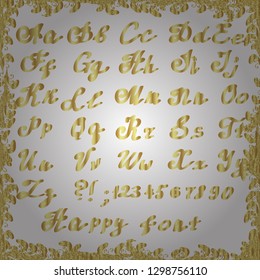 Aa Bb Cc Dd Ee
Ff Gg Hh Ii Jj
Kk Ll Mm Nn Oo
Pp Qq Rr Ss Tt
Uu Vv Ww Xx Yy
Zz ?!; -1234567890
Happy font
shutterstock.com · 1298756110